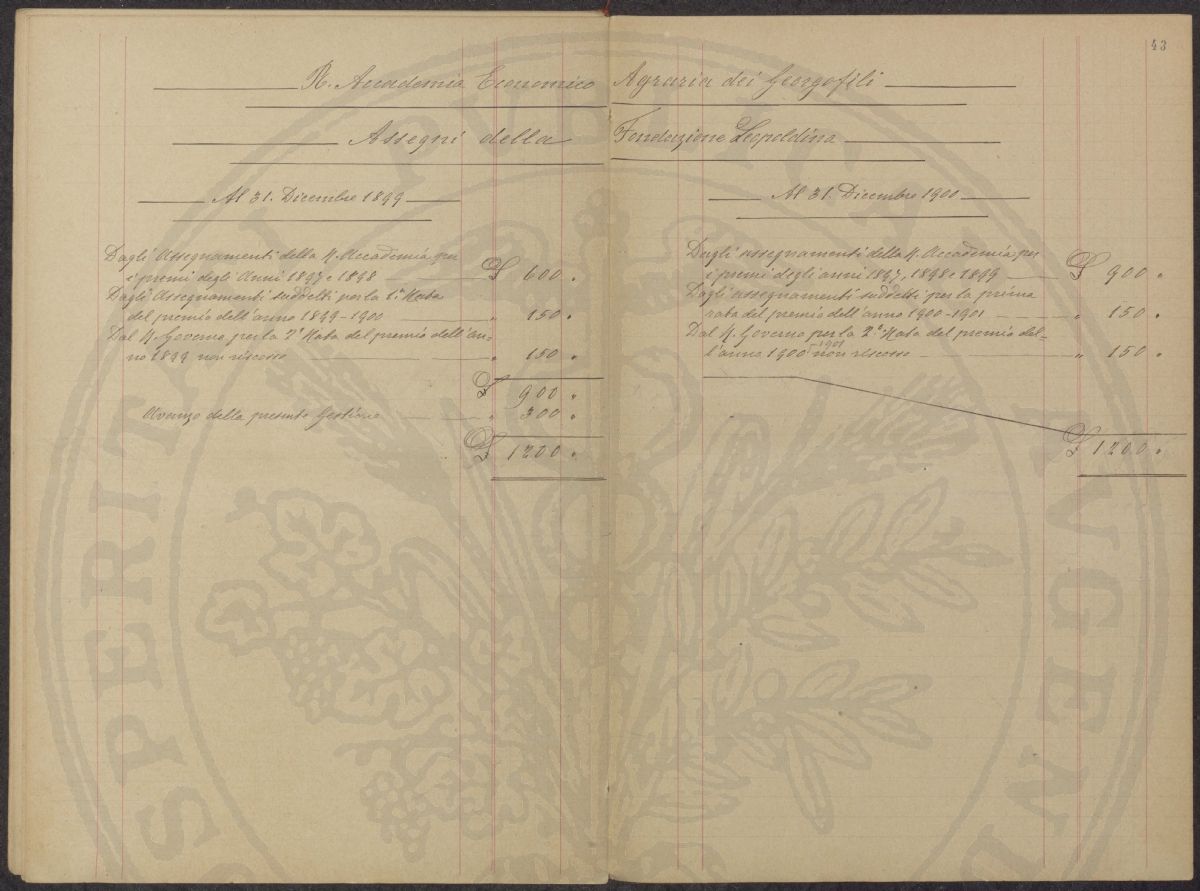 43
R. Accademia Economico Agraria dei Georgofili
Assegni della Fondazione Leopoldina
Al 31. Dicembre 1899
Dagli Assegnamenti della R. Accademia per
i premi degli Anni 1897 e 1898 £ 600 "
Dagli Assegnamenti suddetti per la 1ª Rata
del premio dell'anno 1899-1900 " 150 "
Dal R. Governo per la 2ª Rata del premio dell'an=
no 1899 non riscosso " 150 "
£ 900 "
Avanzo della presente Gestione " 300 "
£ 1200 "
Al 31. Dicembre 1900
Dagli assegnamenti della R. Accademia per
i premi degli anni 1897, 1898 e 1899 £ 900 "
Dagli assegnamenti suddetti per la prima
rata del premio dell'anno 1900-1901 " 150 "
Dal R. Governo per la 2ª Rata del premio del=
l'anno 1900-1901 non riscosso " 150 "
£ 1200 "
PUBLICA
PROSPERITATI AUGENDAE